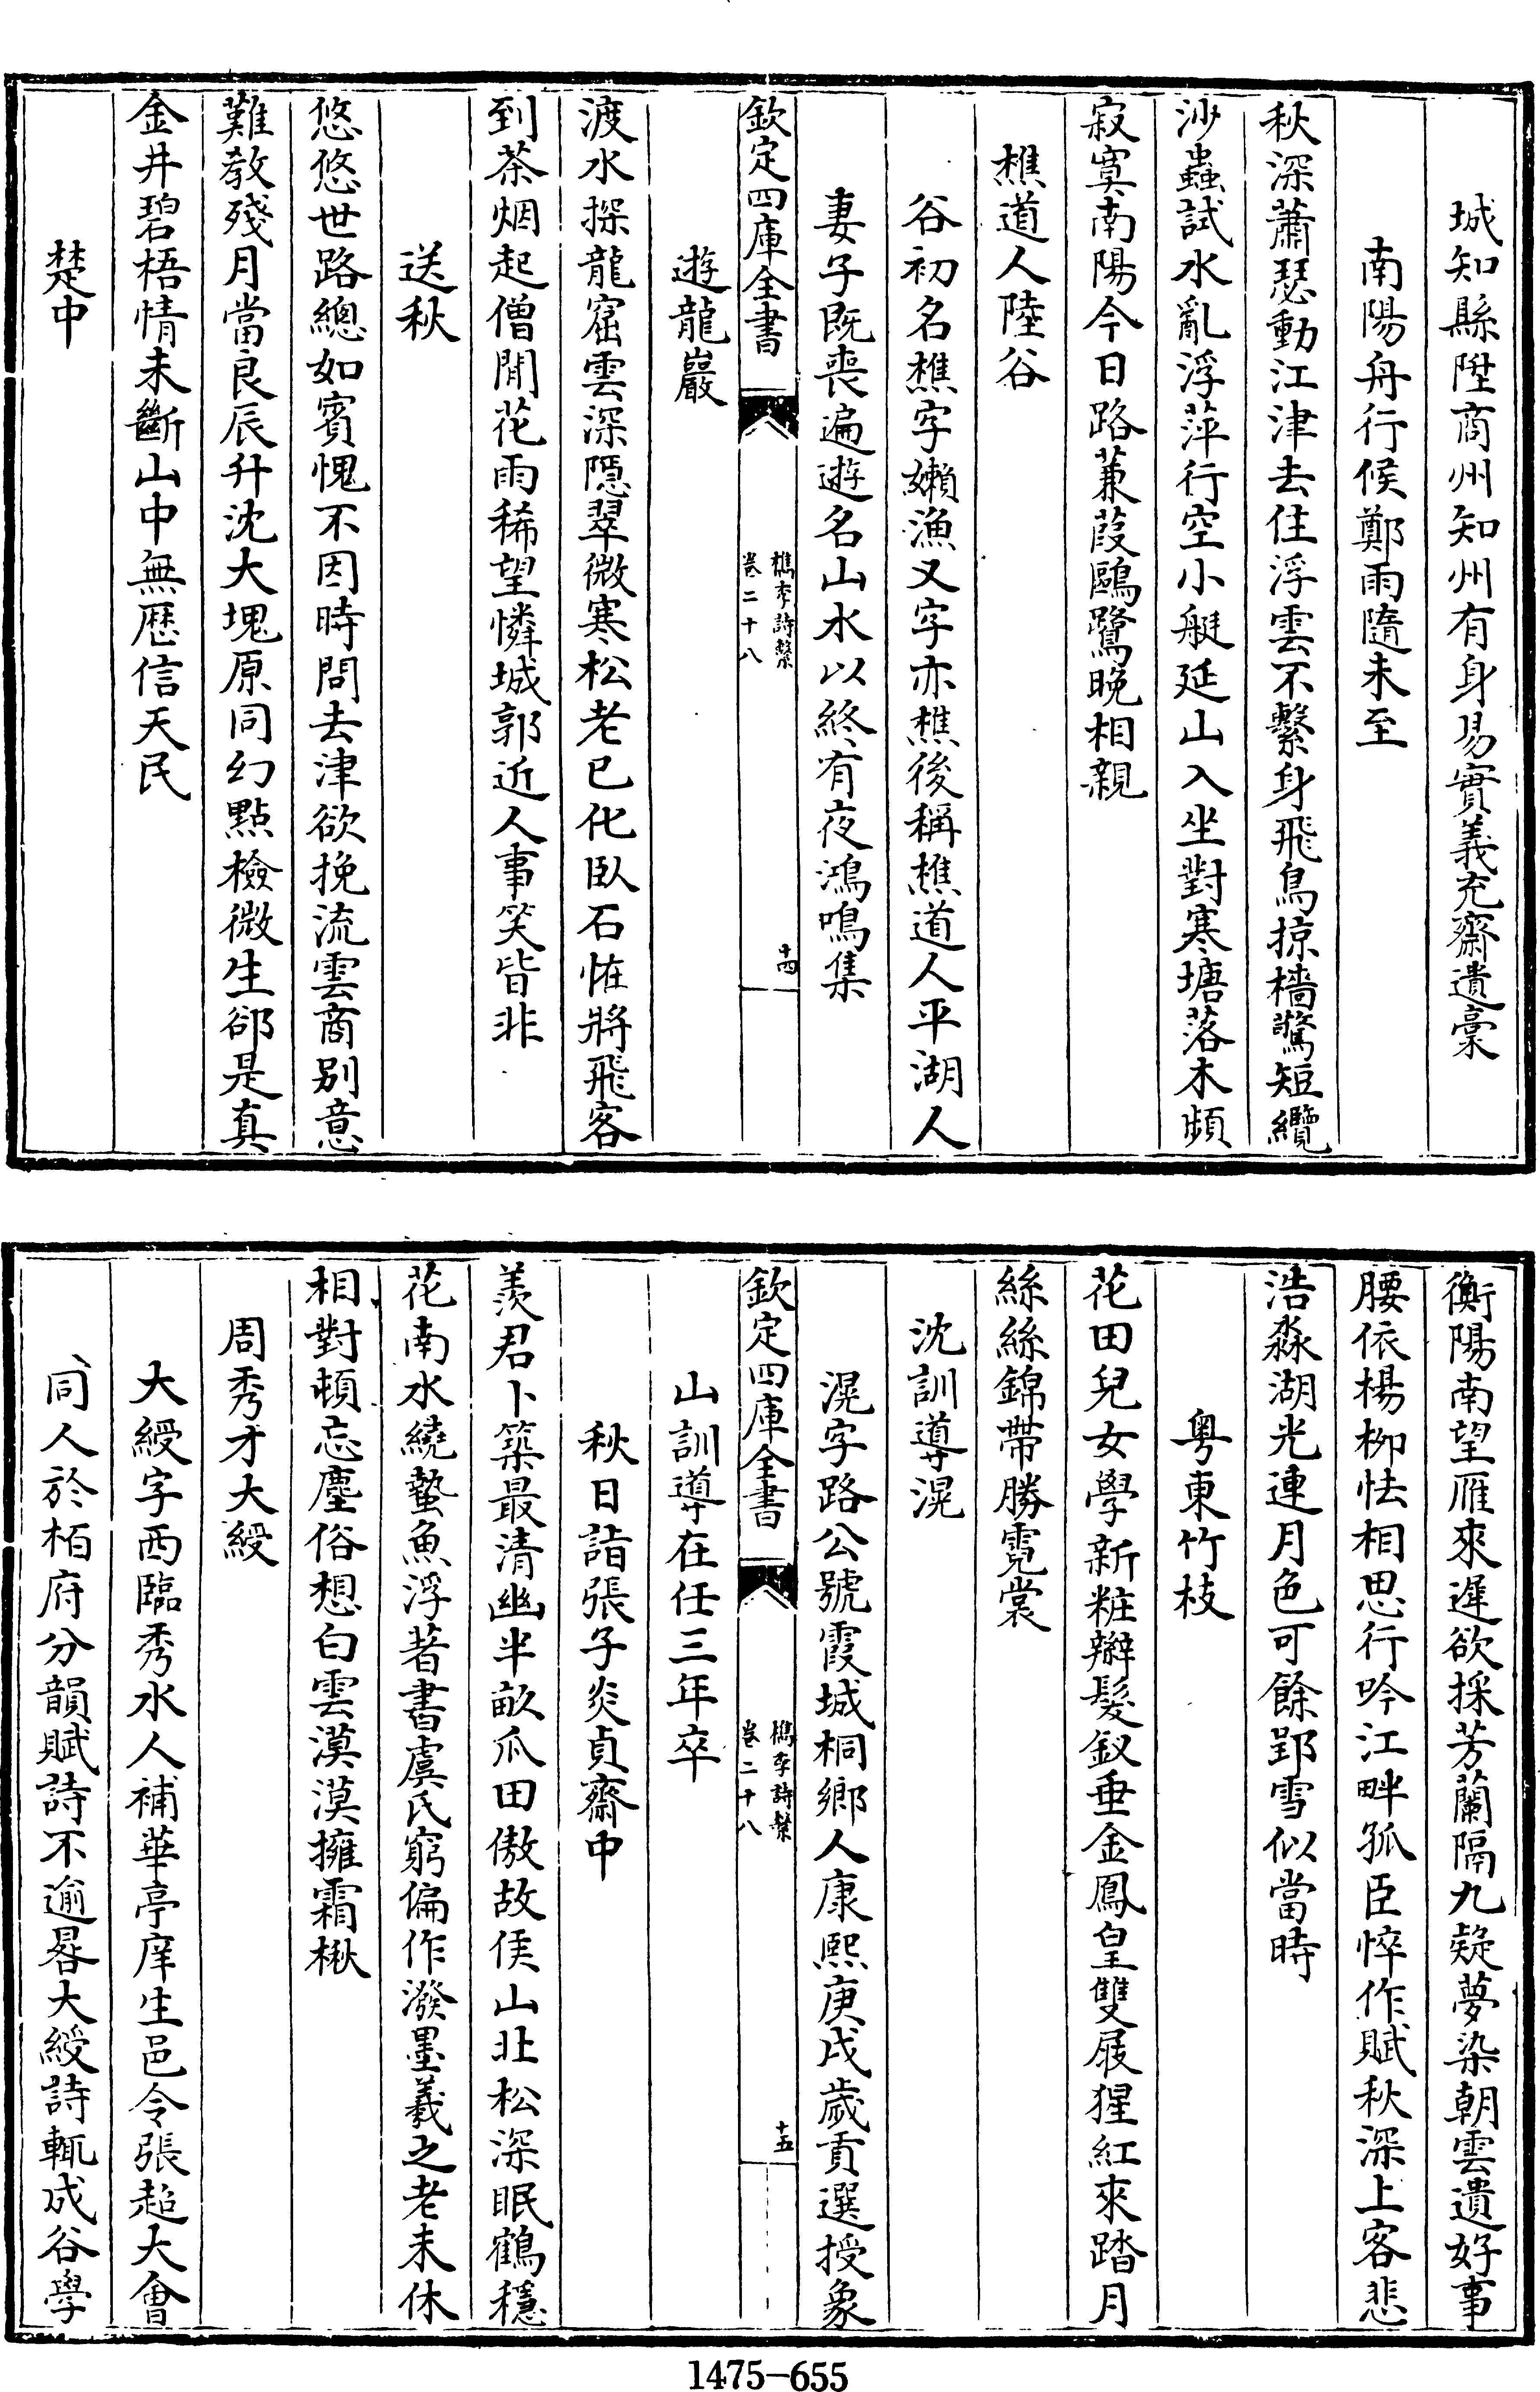 城知縣陞商州知州有身易實義充齋遺稾
南陽舟行候鄭雨隨未至
秋深蕭瑟動江津去住浮雲不繫身飛鳥掠檣驚短纜
沙蟲試水亂浮萍行空小艇延山入坐對寒塘落木頻
寂寞南陽今日路蒹葭鷗鷺晚相親
樵道人陸谷
谷初名樵字嬾漁又字亦樵後稱樵道人平湖人
妻子既喪遍遊名山水以終有夜鴻鳴集
欽定四庫全書
檇李詩繫
卷二十八
十四
遊龍巖
渡水探龍窟雲深隱翠微寒松老已化臥石恠將飛客
到茶烟起僧閒花雨稀望憐城郭近人事笑皆非
送秋
悠悠世路總如賓愧不因時問去津欲挽流雲商別意
難教殘月當良辰升沈大塊原同幻點檢微生卻是真
金井碧梧情未斷山中無歷信天民
楚中
衡陽南望雁來遲欲採芳蘭隔九疑夢染朝雲遺好事
腰依楊柳怯相思行吟江畔孤臣悴作賦秋深上客悲
浩淼湖光連月色可餘郢雪似當時
粵東竹枝
花田兒女學新粧辮髮釵垂金鳳皇雙屐猩紅來踏月
絲絲錦帶勝霓裳
沈訓導滉
滉字路公號霞城桐鄉人康熙庚戌歲貢選授象
欽定四庫全書
檇李詩繫
卷二十八
十五
山訓導在任三年卒
秋日詣張子炎貞齋中
羨君卜築最清幽半畝爪田傲故侯山北松深眠鶴穩
花南水繞蟄魚浮著書虞氏窮偏作潑墨羲之老未休
相對頓忘塵俗想白雲漠漠擁霜楸
周秀才大綬
大綬字西臨秀水人補華亭庠生邑令張超大會
同人於栢府分韻賦詩不逾晷大綬詩輒成谷學
1475-655